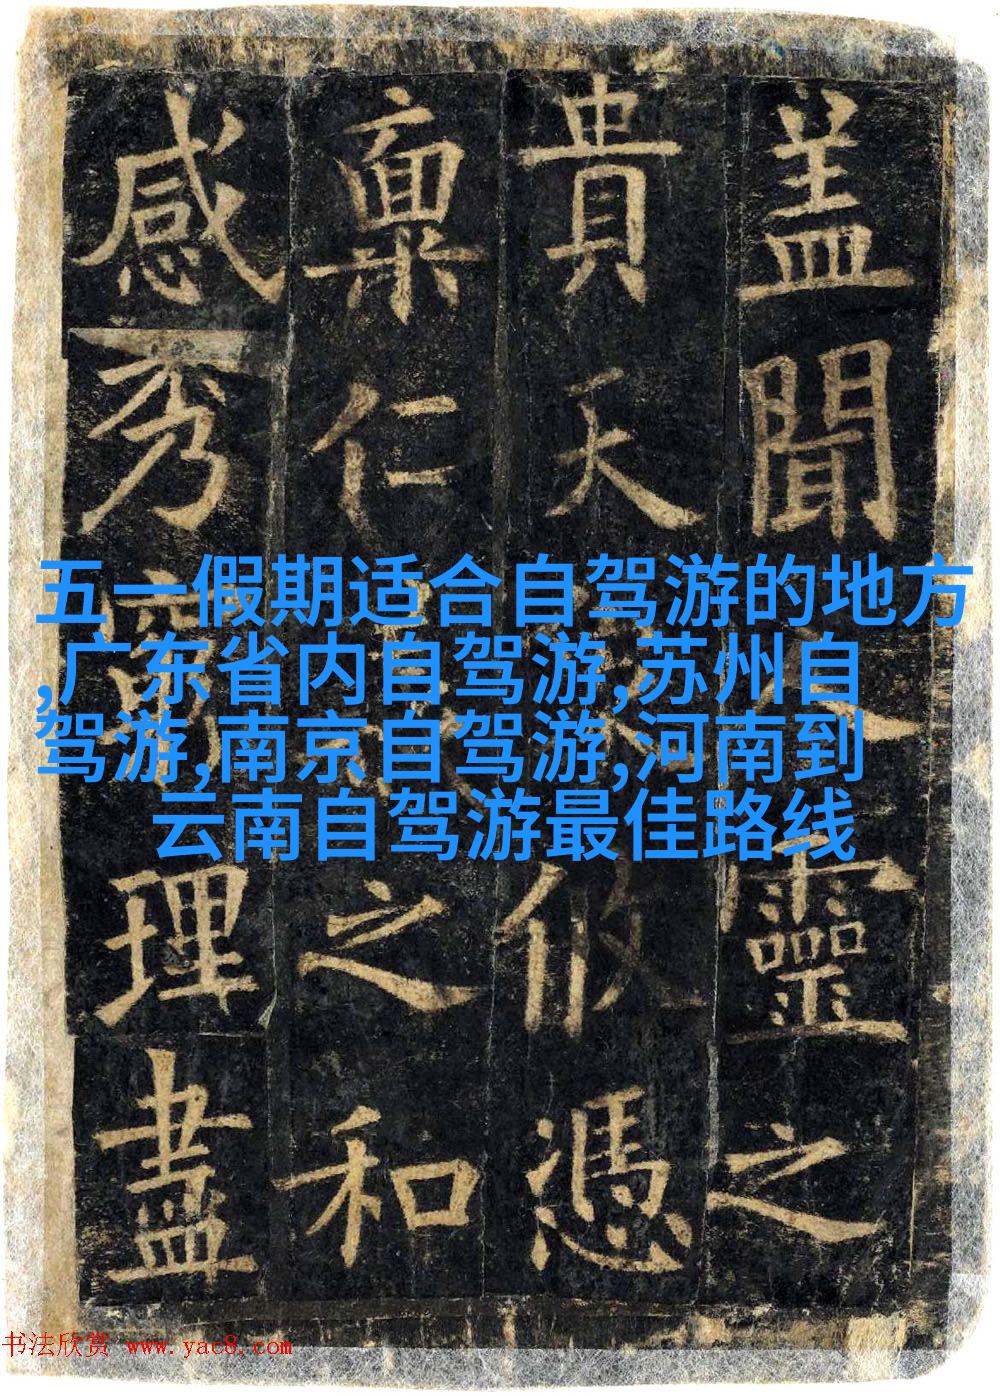 盖聞靈之
貴天攸憑
稟仁之和
感秀理盡
五一假期适合自驾游的地方
,广东省内自驾游,苏州自
驾游,南京自驾游,河南到
云南自驾游最佳路线
书法欣赏 www.yac8.com